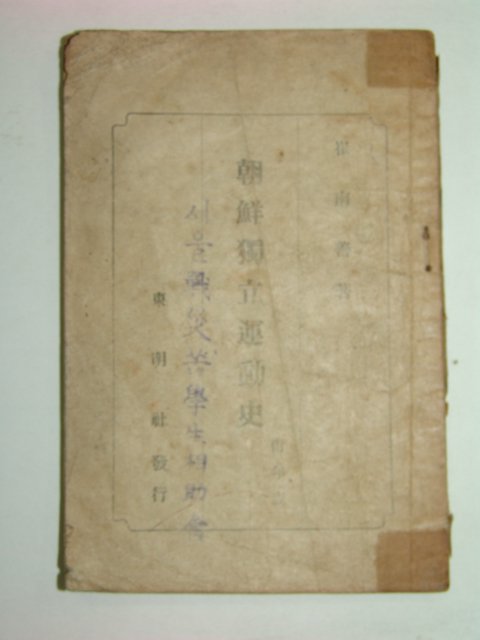 崔南善著
朝鮮獨立運動史
서울戰災苦學生相助會
東明社發行